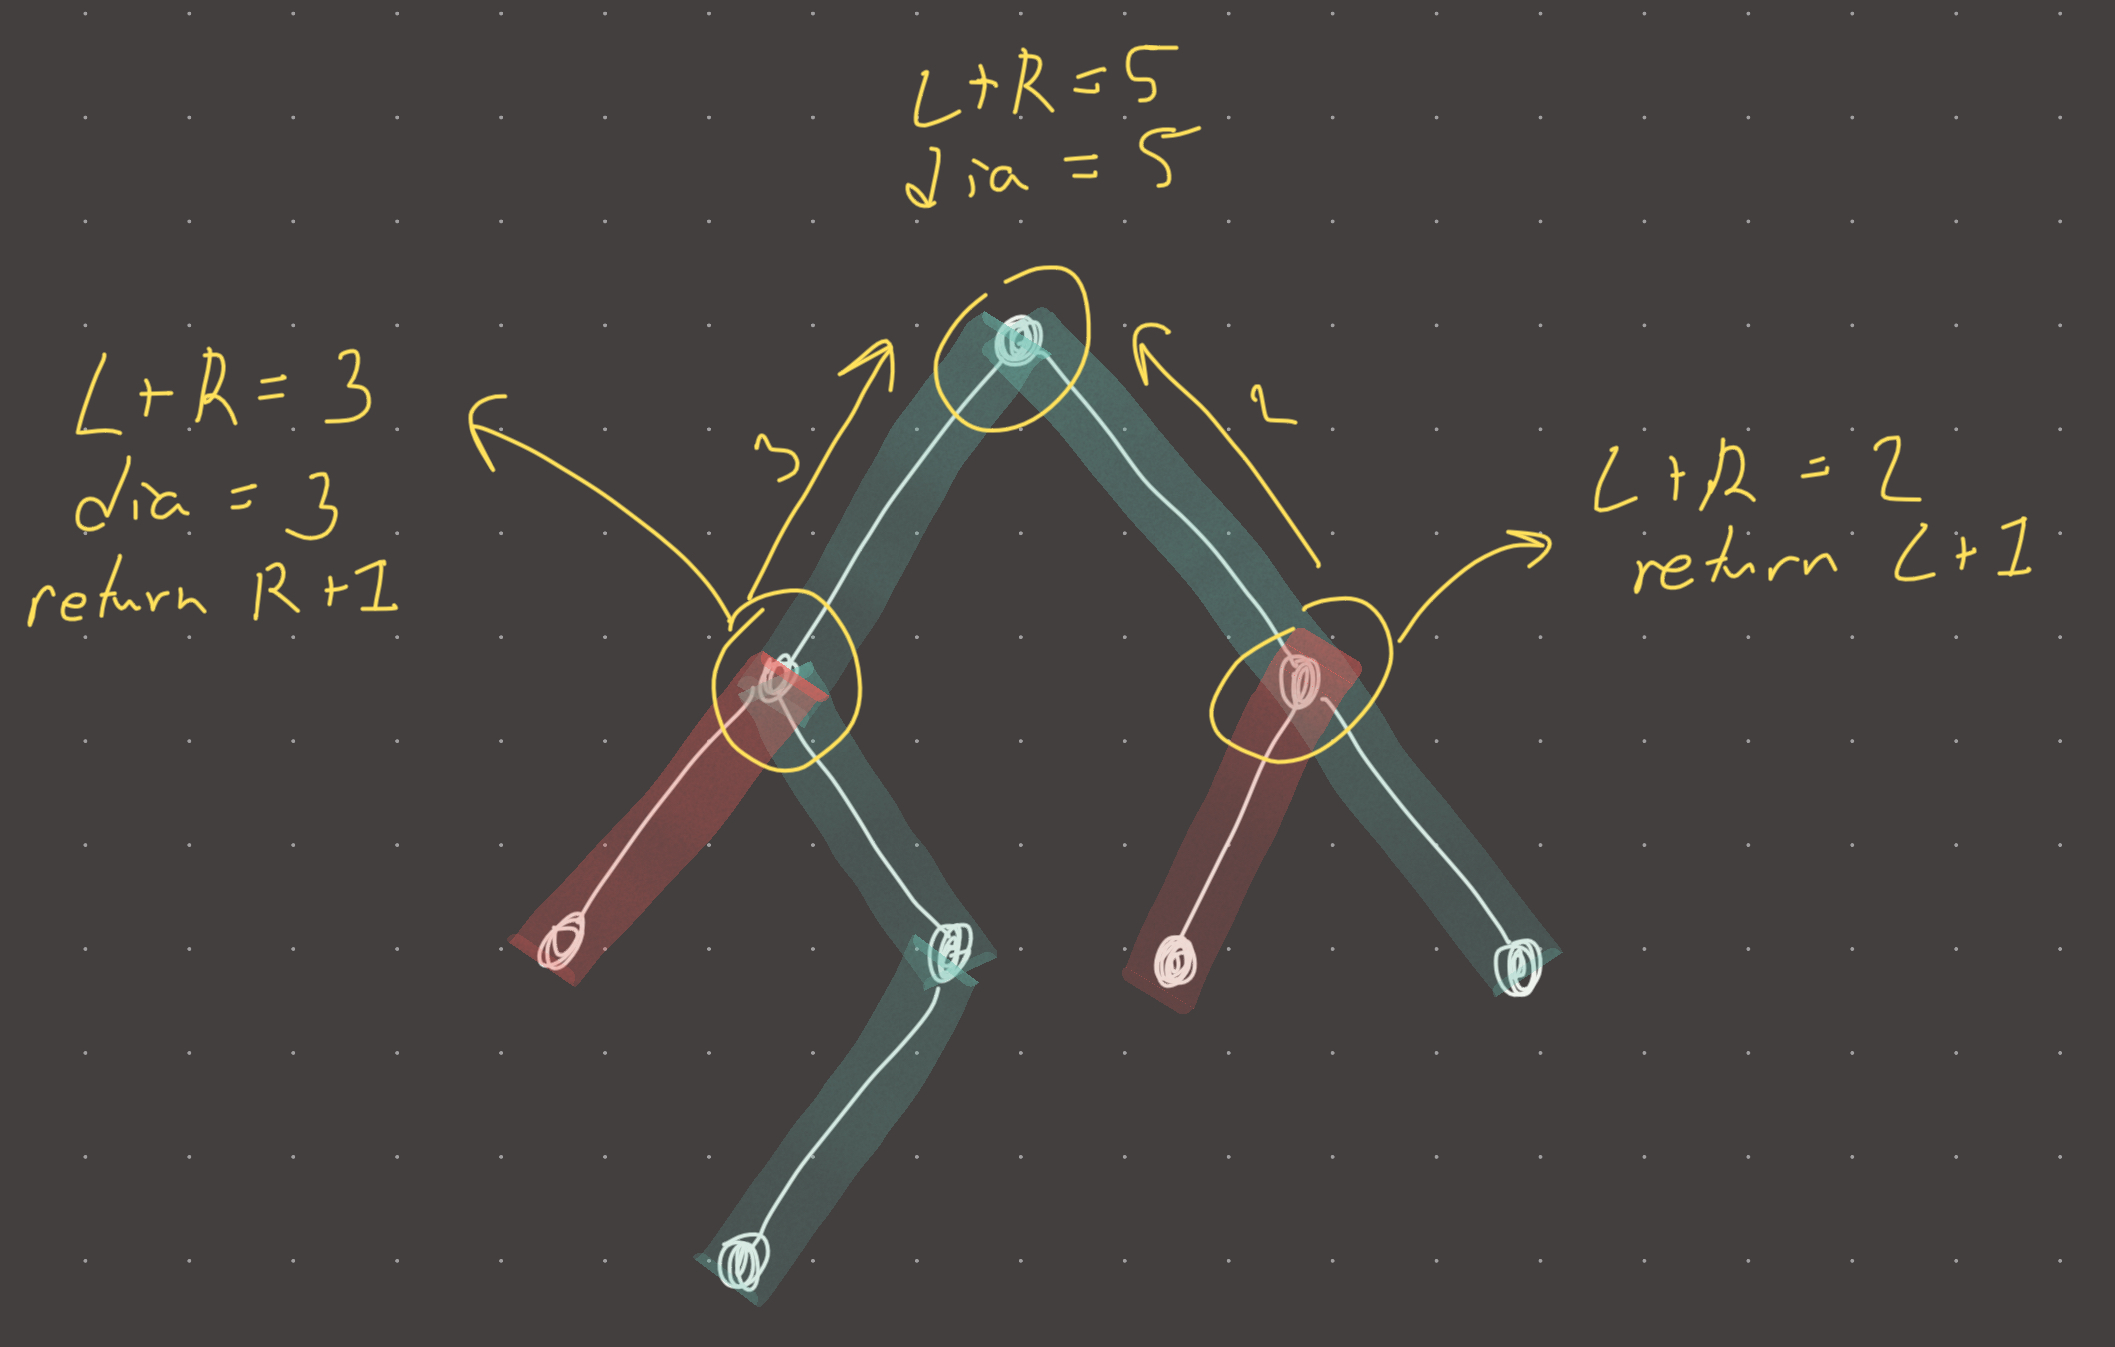 L+R=5
dia = 5
L+R= 3
dia = 3
return R+1
3
2
L+R = 2
return L+1